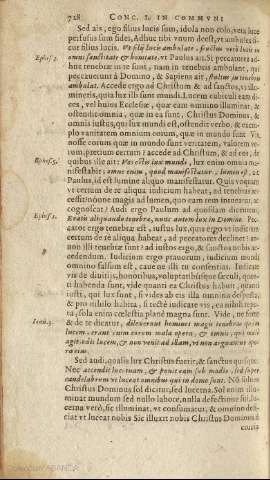 728 CONC. I. IN COMMVNI
Sed ais, ego filius lucis sum, idola non colo, vera luce
perfusus sum fides, Adhuc tibi vnum deest, vt ambules si-
cut filius lucis. Vt filij lucis ambulate, fructus verò lucis in
Ephes. 5.
omni sanctitate & bonitate, vt Paulus ait. Si peccator es ad-
huc tenebræ in te sunt, nam in tenebris ambulant, qui
peccauerunt à Domino, & Sapiens ait,
ambulat. Accede ergo ad Christum & ad sanctos, vt illu-
mineris, quia lux illi sunt mundi. Lucerna
res, vel huius Ecclesiæ, quæ eam omnino illuminat, &
ostendit omnia, quæ in ea sunt, Christus Dominus, &
omnis iustus, qui lux mundi est, ostendit verbo, & exem-
plo vanitatem omnium eorum, quæ in mundo sunt. Vis
nosse eorum quæ in mundo sunt veritatem, valorem ve-
rum, precium certum? accede ad Christum, & ad eos, de
Ephes. 5.
quibus ille ait: Vos estis lux mundi, lux enim omnia ma-
nifestabit: omne enim, quod manifestatur, lumen est, vt
Paulus, id est lumine aliquo manifestatur. Quis vnquam
vt certum de re aliqua iudicium habeat, ad tenebras ac-
cessit? nónne magis ad lumen, quo eam rem intueatur, ac
cognoscat? Audi ergo Paulum ad quosdam dicentum,
Ephes. 5.
Eratis aliquando tenebræ, nunc autem lux in Domino. Pec-
cator ergo tenebræ est, iustus lux, qui ergo vt iudicium
certum de re aliqua habeat, ad peccatores declinet? an
non illi tenebræ sunt? ad iustos ergo, & sanctos nobis ac-
cedendum. Iudicium ergo prauorum, iudicium mundi
omnino falsum est, caue ne illi tu consentias. Iudicate
vis de diuitijs, honoribus, voluptatibusque sæculi, quan-
ti habenda sunt, vide quanti ea Christus habuit, quanti
iusti, qui lux sunt, si vides ab eis illa omnia despecta,
& pro nihilo habita, si rectè iudicare vis, ea nihil repu-
ta, sola enim cœlestia planè magna sunt. Vide, ne forte
Ioan. 3.
& de te dicatur, dilexerunt homines magis tenebras quàm
lucem, erant enim eorum mala opera, & omnis, qui malè
agit odit lucem, & non venit ad illam, vt non arguantur ope-
ra eius.
Sed audi, qualis lux Christus fuerit, & sanctus quisque.
Nec accendit lucernam, & ponit eam sub modio, sed super
candelabrum vt luceat omnibus qui in domo sunt. Nō solùm
Christus Dominus sol dicitur, sed lucerna. Sol enim illu-
minat mundum sed nullo labore, nulla defectione sui, lu-
cerna verò, sic illuminat, vt consumatur, & omnino defi-
ciat vt luceat nobis Sic illuxit nobis Christus Dominus